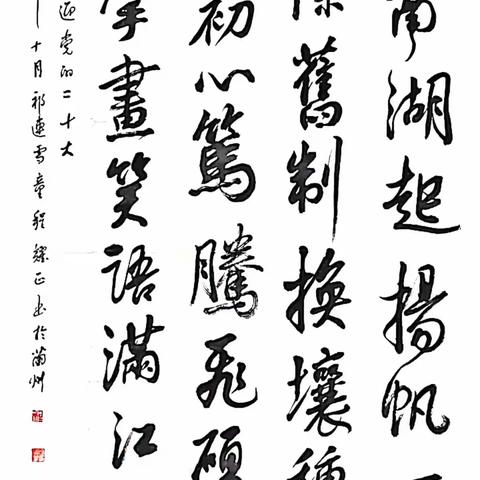 南湖起揚帆
除舊制換壤種
初心篤騰飛碩
擘畫笑語滿江
迎党的二十大
十月祁連雪童程正书於蘭州